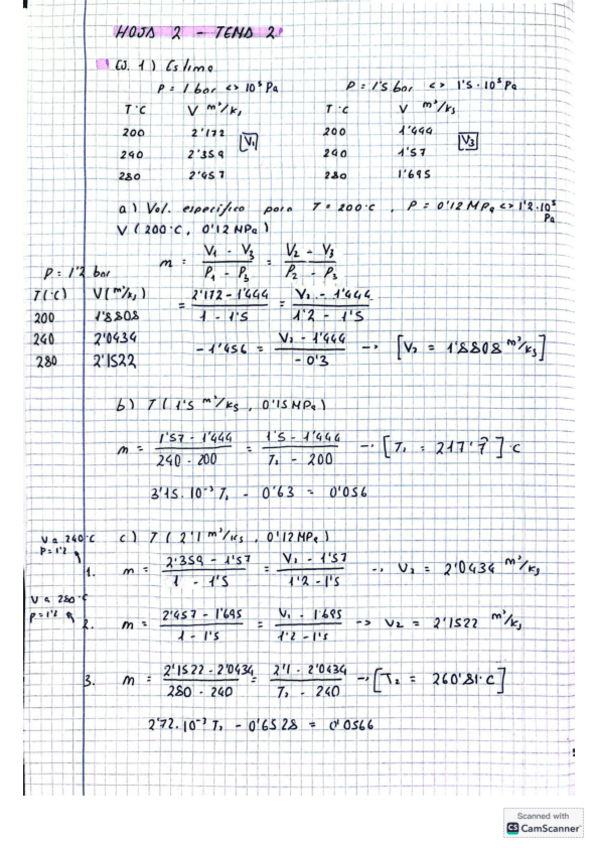 HOJA 2 - TEMA 2
Ej. 1) Estime
P = 1 bar <> 10⁵ Pa
P = 1'5 bar <> 1'5 · 10⁵ Pa
T °C V m³/kg
T °C V m³/kg
200 2'172 V₁
200 1'444 V₃
240 2'359
240 1'57
280 2'457
280 1'695
a) Vol. específico para T = 200°C, P = 0'12 MPa <> 1'2·10⁵ Pa
V (200°C, 0'12 MPa)
m = V₁ - V₃ / P₁ - P₃ = V₂ - V₃ / P₂ - P₃
P = 1'2 bar
T(°C) V(m³/kg)
200 1'8808
240 2'0434
280 2'1522
= 2'172 - 1'444 / 1 - 1'5 = V₂ - 1'444 / 1'2 - 1'5
-1'456 = V₂ - 1'444 / -0'3 → [V₂ = 1'8808 m³/kg]
b) T (1'5 m³/kg, 0'15 MPa)
m = 1'57 - 1'444 / 240 - 200 = 1'5 - 1'444 / T₁ - 200 → [T₁ = 217'7̂] °C
3'15·10⁻³ T₁ - 0'63 = 0'056
c) T (2'1 m³/kg, 0'12 MPa)
V a 240°C
P = 1'2
1. m = 2'359 - 1'57 / 1 - 1'5 = V₁ - 1'57 / 1'2 - 1'5 → V₁ = 2'0434 m³/kg
V a 280°C
P = 1'2
2. m = 2'457 - 1'695 / 1 - 1'5 = V₁ - 1'695 / 1'2 - 1'5 → V₂ = 2'1522 m³/kg
3. m = 2'1522 - 2'0434 / 280 - 240 = 2'1 - 2'0434 / T₂ - 240 → [T₂ = 260'81°C]
2'72·10⁻³ T₂ - 0'6528 = 0'0566
Scanned with
CS CamScanner